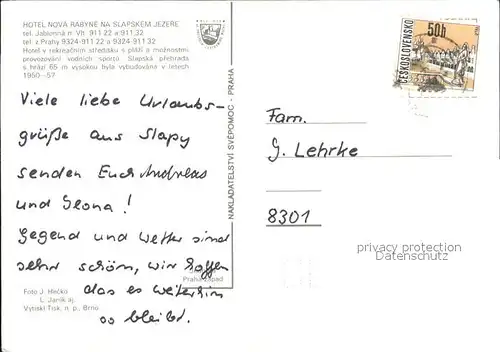 HOTEL NOVÁ RABYNĚ NA SLAPSKÉM JEZEŘE
tel. Jablonná n Vlt 911 22 a 911 32
tel. z Prahy 9324-911 22 a 9324-911 32
Hotel v rekreačním středisku s pláží a možnostmi
provozování vodních sportů. Slapská přehrada
s hrází 65 m vysokou byla vybudována v letech
1950—57
Viele liebe Urlaubs-
grüße aus Slapy
senden Euch Andreas
und Ilona!
Gegend und Wetter sind
sehr schön, wir hoffen
das es weiterhin
so bleibt.
Praha-západ
Foto J. Hlečko
L. Janík aj.
Vytiskl Tisk, n. p., Brno
NAKLADATELSTVÍ SVÉPOMOC - PRAHA
ČESKOSLOVENSKO
50h
Fam.
G. Lehrke
8301
privacy protection
Datenschutz